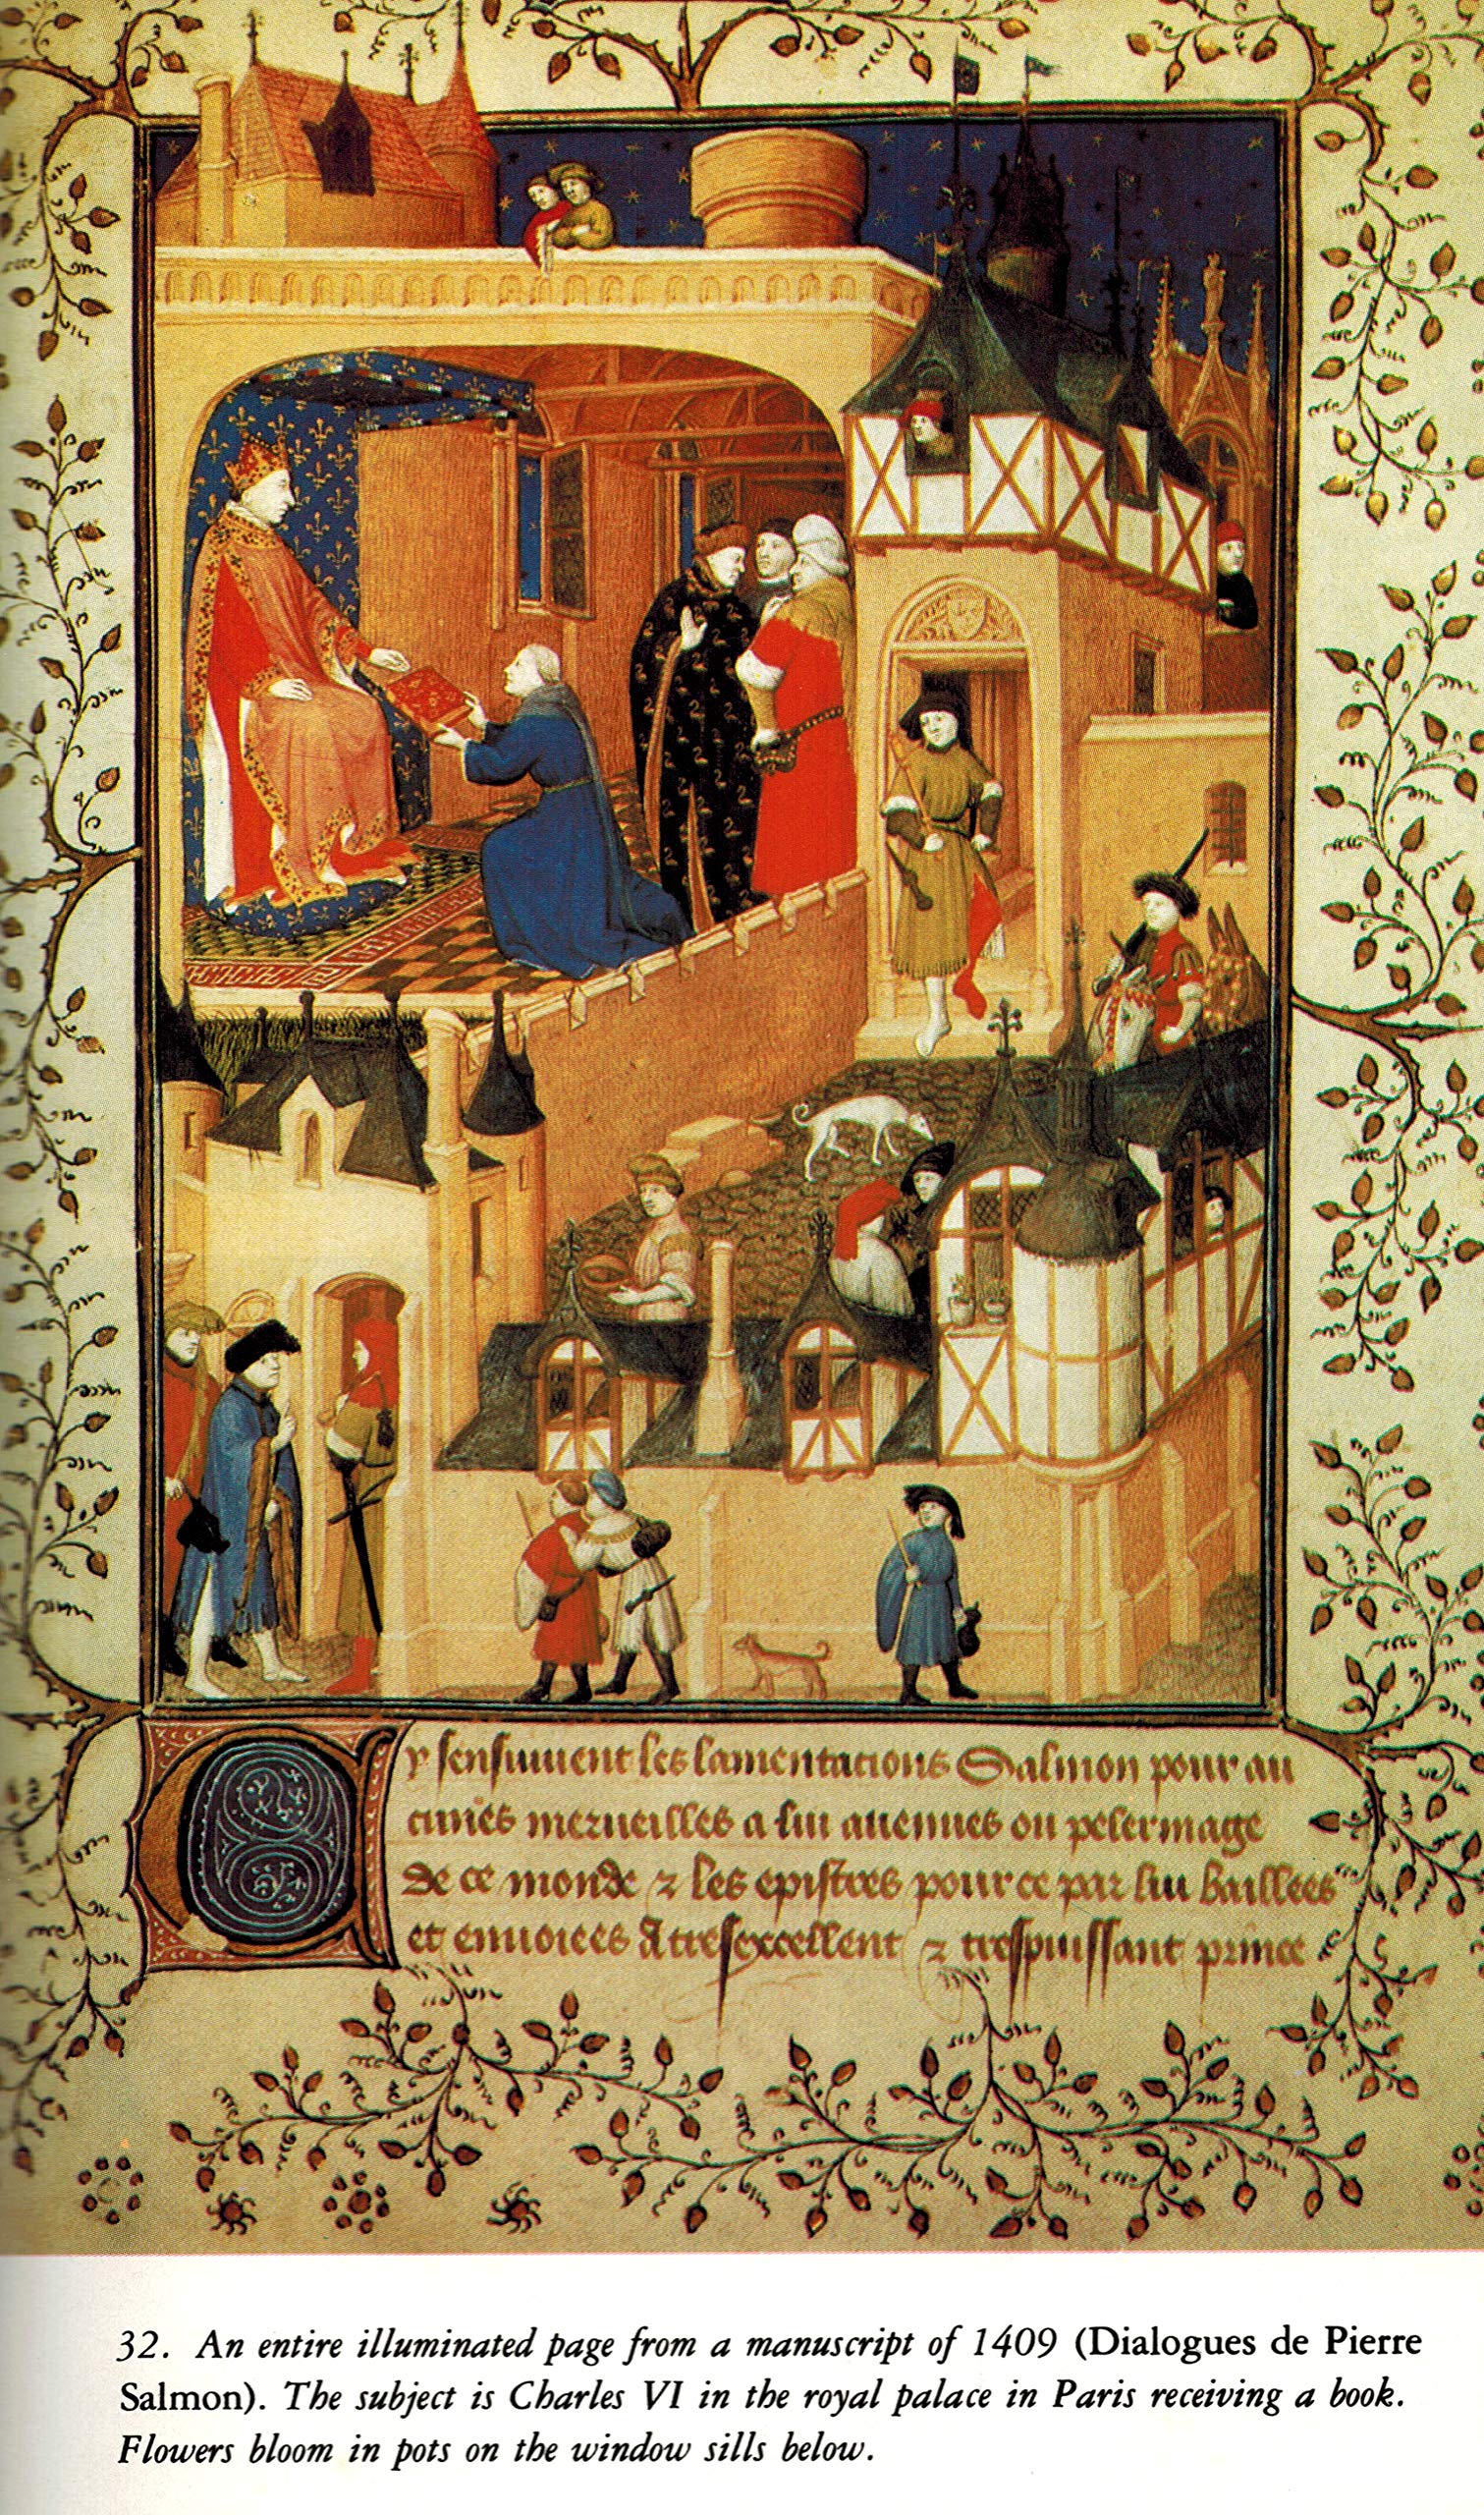 Cy sensuiuent les lamentacions Salmon pour au
cunes merueilles a lui auenues ou pelerinage
de ce monde & les epistres pour ce par lui baillees
et enuoiees A tresexcellent & trespuissant prince
32. An entire illuminated page from a manuscript of 1409 (Dialogues de Pierre
Salmon). The subject is Charles VI in the royal palace in Paris receiving a book.
Flowers bloom in pots on the window sills below.